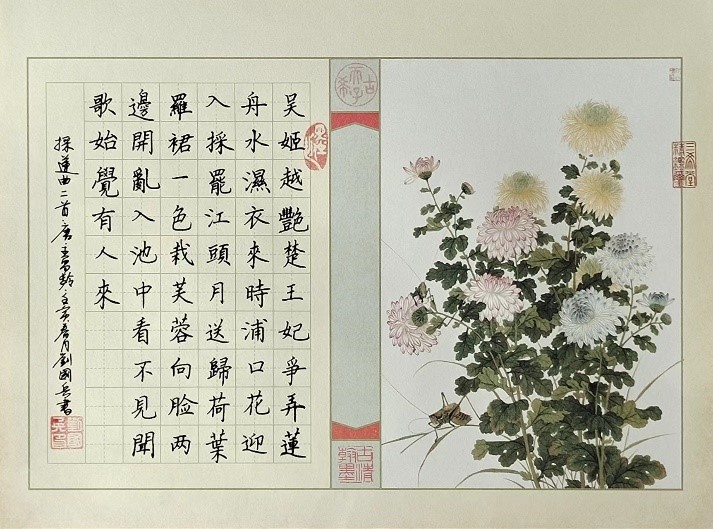 吴姬越艷楚王妃爭弄蓮
舟水濕衣來時浦口花迎
入採罷江頭月送歸荷葉
羅裙一色栽芙蓉向脸两
邊開亂入池中看不見聞
歌始覺有人來
採蓮曲二首唐王昌齡壬寅春月劉國兵書
古希天子
三希堂精鑑璽